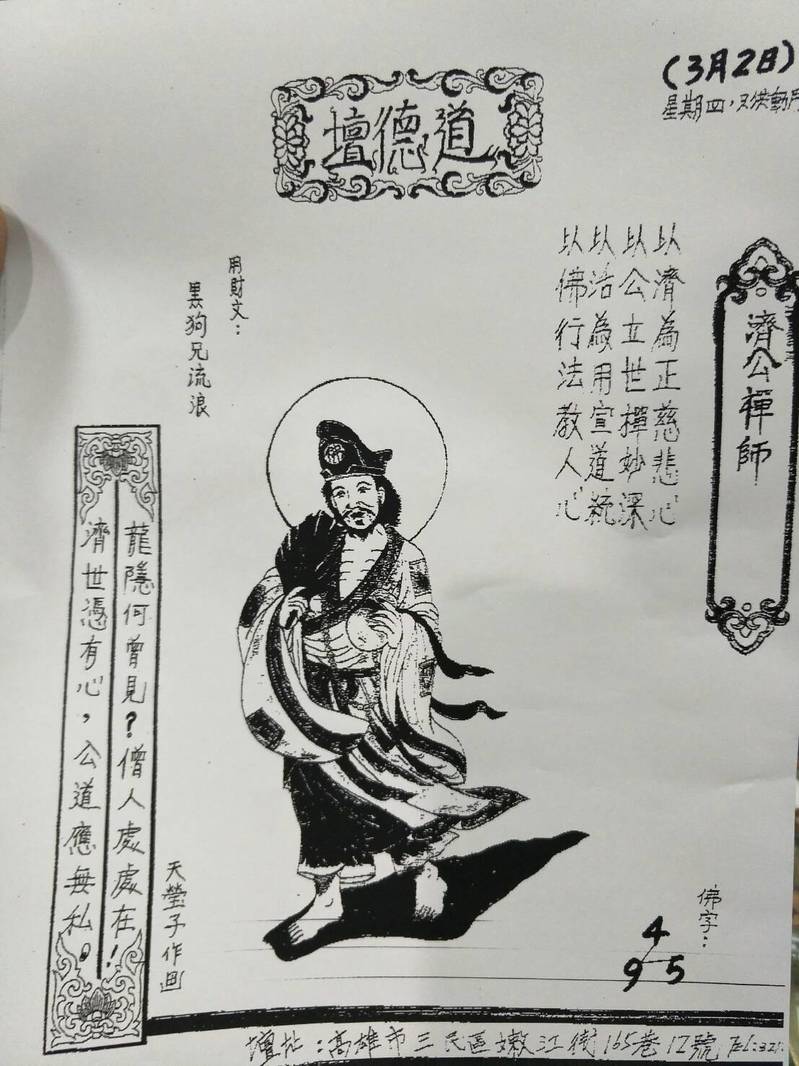 (3月2日)
星期四，
道德壇
濟公禪師
以濟為正慈悲心
以公立世禪妙深
以活為用宣道統
以佛行法教人心
用財文：
黑狗兄流浪
龍隱何曾見？僧人處處在！
濟世憑有心，公道應無私。
天瑩子作画
佛字：
4
9 5
壇址：高雄市三民區嫩江街165巷12號 Tel:321